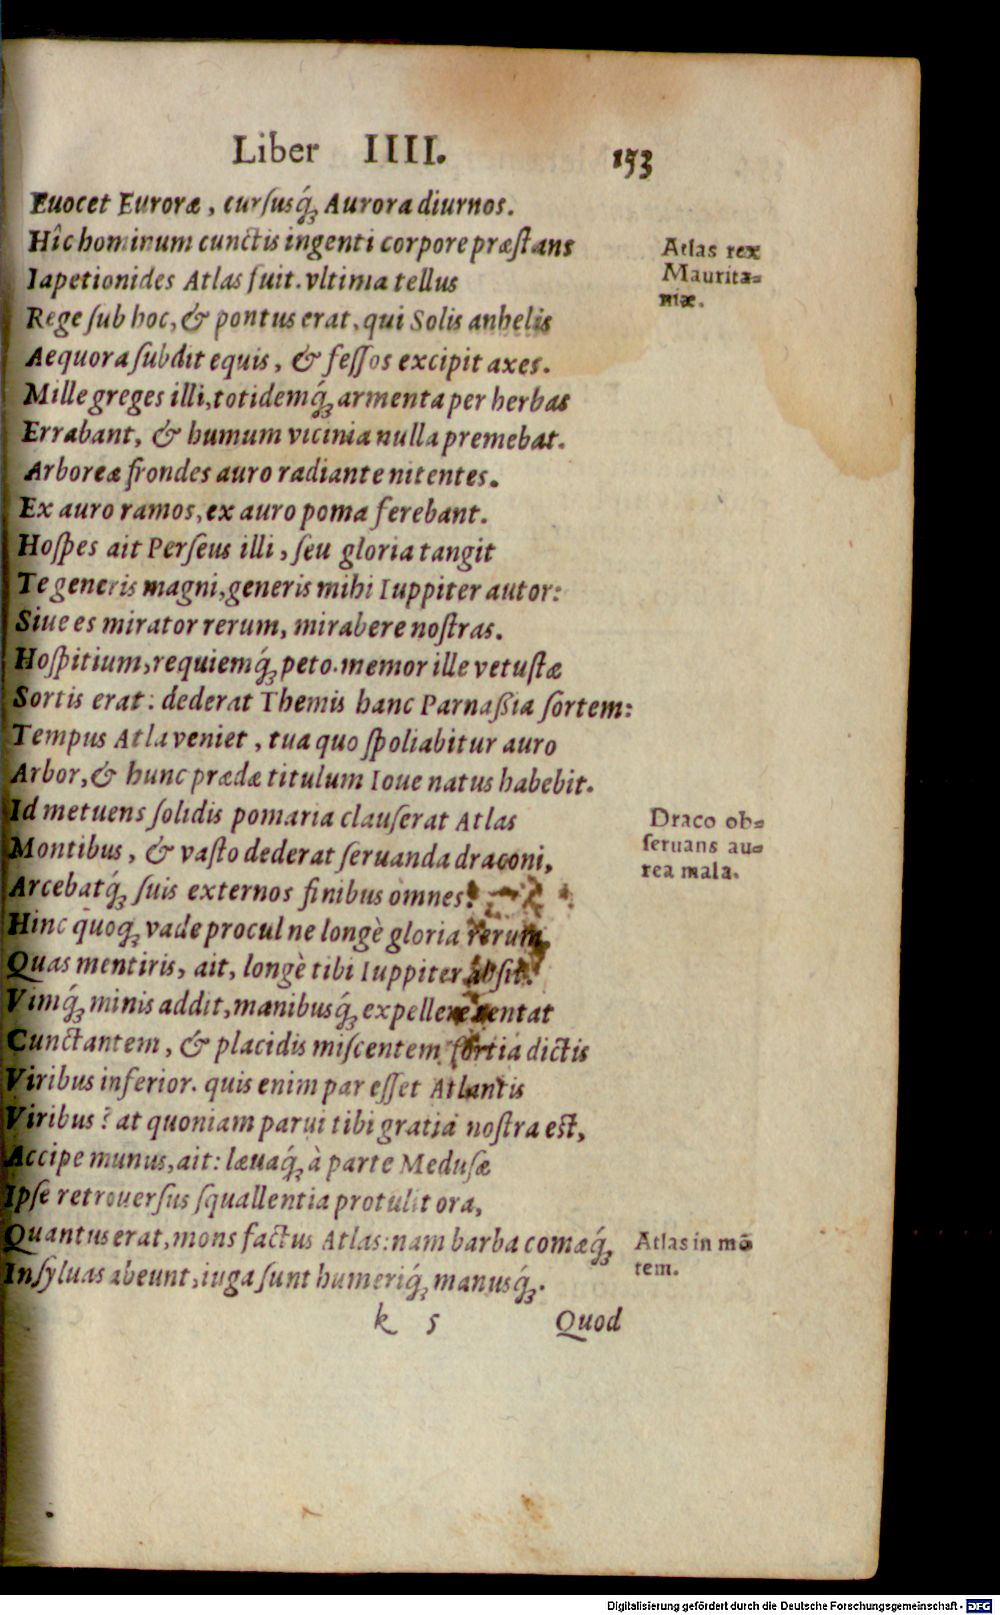 Liber IIII. 153
Euocet Euroræ, cursusq́; Aurora diurnos.
Hîc hominum cunctis ingenti corpore præstans
Atlas rex
Iapetionides Atlas fuit. vltima tellus
Maurita-
Rege sub hoc, & pontus erat, qui Solis anhelis
niæ.
Aequora subdit equis, & fessos excipit axes.
Mille greges illi, totidemq́; armenta per herbas
Errabant, & humum vicinia nulla premebat.
Arboreæ frondes auro radiante nitentes.
Ex auro ramos, ex auro poma ferebant.
Hospes ait Perseus illi, seu gloria tangit
Te generis magni, generis mihi Iuppiter autor:
Siue es mirator rerum, mirabere nostras.
Hospitium, requiemq́; peto. memor ille vetustæ
Sortis erat: dederat Themis hanc Parnaßia sortem:
Tempus Atla veniet, tua quo spoliabitur auro
Arbor, & hunc prædæ titulum Ioue natus habebit.
Id metuens solidis pomaria clauserat Atlas
Draco ob-
Montibus, & vasto dederat seruanda draconi,
seruans au-
Arcebatq́; suis externos finibus omnes.
rea mala.
Hinc quoq; vade procul ne longè gloria rerum,
Quas mentiris, ait, longè tibi Iuppiter absit.
Vimq́; minis addit, manibusq́; expellere tentat
Cunctantem, & placidis miscentem fortia dictis
Viribus inferior. quis enim par esset Atlantis
Viribus? at quoniam parui tibi gratia nostra est,
Accipe munus, ait: læuaq́; à parte Medusæ
Ipse retrouersus squallentia protulit ora,
Quantus erat, mons factus Atlas: nam barba comæq́;
Atlas in mō
In syluas abeunt, iuga sunt humeriq́; manusq́;.
tem.
k 5 Quod
Digitalisierung gefördert durch die Deutsche Forschungsgemeinschaft - DFG